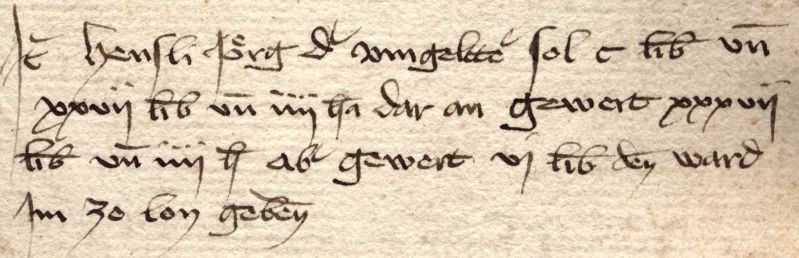 It Hensli Jörg dˢ vmgeltˢ sol c lib vn̄
xxvii lib vn̄ iiii hlr dar an gewert xxxvii
lib vn̄ iiii h abˢ gewert vj lib den̄ ward
Jm ze lon geben̄